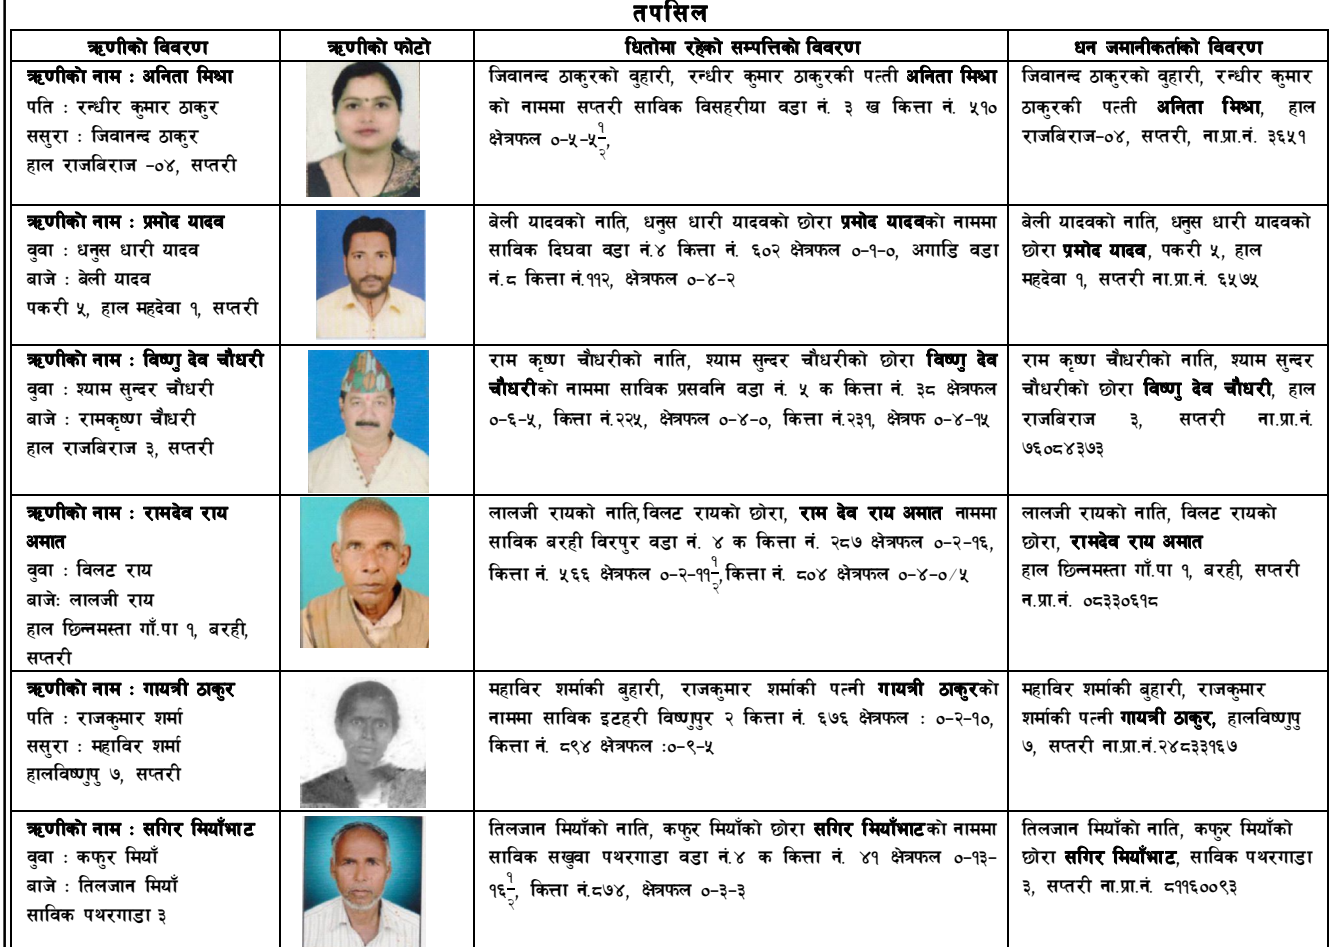 तपसिल
ऋणीको विवरण
ऋणीको फोटो
धितोमा रहेको सम्पत्तिको विवरण
धन जमानीकर्ताको विवरण
ऋणीको नाम : अनिता मिश्रा
पति : रन्धीर कुमार ठाकुर
ससुरा : जिवानन्द ठाकुर
हाल राजबिराज -०४, सप्तरी
जिवानन्द ठाकुरको वुहारी, रन्धीर कुमार ठाकुरकी पत्ती अनिता मिश्रा
को नाममा सप्तरी साविक विसहरीया वडा नं. ३ ख कित्ता नं. ५१०
क्षेत्रफल ०-५-५१/२,
जिवानन्द ठाकुरको वुहारी, रन्धीर कुमार
ठाकुरकी पत्ती अनिता मिश्रा, हाल
राजबिराज-०४, सप्तरी, ना.प्रा.नं. ३६५१
ऋणीको नाम : प्रमोद यादव
वुवा : धनुस धारी यादव
बाजे : बेली यादव
पकरी ५, हाल महदेवा १, सप्तरी
बेली यादवको नाति, धनुस धारी यादवको छोरा प्रमोद यादवको नाममा
साविक दिघवा वडा नं.४ कित्ता नं. ६०२ क्षेत्रफल ०-१-०, अगाडि वडा
नं.८ कित्ता नं.११२, क्षेत्रफल ०-४-२
बेली यादवको नाति, धनुस धारी यादवको
छोरा प्रमोद यादव, पकरी ५, हाल
महदेवा १, सप्तरी ना.प्रा.नं. ६५७५
ऋणीको नाम : विष्णु देव चौधरी
वुवा : श्याम सुन्दर चौधरी
बाजे : रामकृष्णा चौधरी
हाल राजबिराज ३, सप्तरी
राम कृष्णा चौधरीको नाति, श्याम सुन्दर चौधरीको छोरा विष्णु देव
चौधरीको नाममा साविक प्रसवनि वडा नं. ५ क कित्ता नं. ३८ क्षेत्रफल
०-६-५, कित्ता नं.२२५, क्षेत्रफल ०-४-०, कित्ता नं.२३१, क्षेत्रफ ०-४-१५
राम कृष्णा चौधरीको नाति, श्याम सुन्दर
चौधरीको छोरा विष्णु देव चौधरी, हाल
राजबिराज ३, सप्तरी ना.प्रा.नं.
७६०८४३७३
ऋणीको नाम : रामदेव राय
अमात
वुवा : विलट राय
बाजेः लालजी राय
हाल छिन्नमस्ता गाँ.पा १, बरही,
सप्तरी
लालजी रायको नाति,विलट रायको छोरा, राम देव राय अमात नाममा
साविक बरही विरपुर वडा नं. ४ क कित्ता नं. २८७ क्षेत्रफल ०-२-१६,
कित्ता नं. ५६६ क्षेत्रफल ०-२-१११/२,कित्ता नं. ८०४ क्षेत्रफल ०-४-०/५
लालजी रायको नाति, विलट रायको
छोरा, रामदेव राय अमात
हाल छिन्नमस्ता गाँ.पा १, बरही, सप्तरी
न.प्रा.नं. ०८३३०६१८
ऋणीको नाम : गायत्री ठाकुर
पति : राजकुमार शर्मा
ससुरा : महाविर शर्मा
हालविष्णुपु ७, सप्तरी
महाविर शर्माकी बुहारी, राजकुमार शर्माकी पत्नी गायत्री ठाकुरको
नाममा साविक इटहरी विष्णुपुर २ कित्ता नं. ६७६ क्षेत्रफल : ०-२-१०,
कित्ता नं. ८९४ क्षेत्रफल :०-९-५
महाविर शर्माकी बुहारी, राजकुमार
शर्माकी पत्नी गायत्री ठाकुर, हालविष्णुपु
७, सप्तरी ना.प्रा.नं.२४८३३१६७
ऋणीको नाम : सगिर मियाँभाट
वुवा : कफुर मियाँ
बाजे : तिलजान मियाँ
साविक पथरगाडा ३
तिलजान मियाँको नाति, कफुर मियाँको छोरा सगिर मियाँभाटको नाममा
साविक सखुवा पथरगाडा वडा नं.४ क कित्ता नं. ४१ क्षेत्रफल ०-१३-
१६१/२, कित्ता नं.८७४, क्षेत्रफल ०-३-३
तिलजान मियाँको नाति, कफुर मियाँको
छोरा सगिर मियाँभाट, साविक पथरगाडा
३, सप्तरी ना.प्रा.नं. ८११६००९३